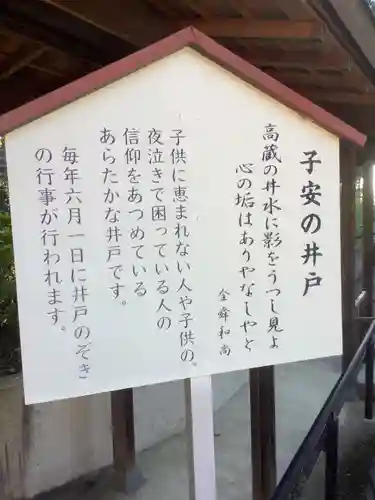 子安の井戸
高蔵の井水に影をうつし見よ
心の垢はありやなしやと
全舜和尚
子供に恵まれない人や子供の
夜泣きで困っている人の
信仰をあつめている
あらたかな井戸です。
毎年六月一日に井戸のぞき
の行事が行われます。